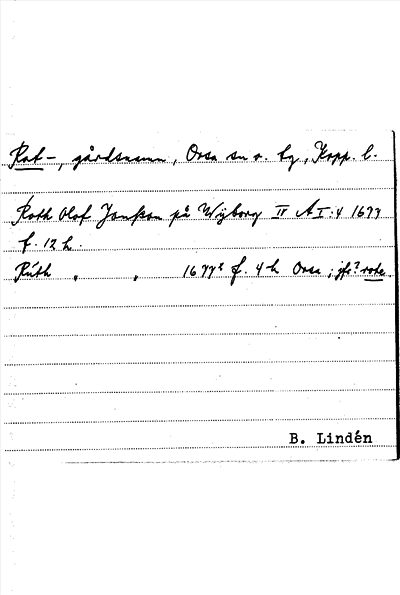 Rot-, gårdsnamn, Orsa sn o. by, Kopp. l.
Roth Olof Janßon på Wijborg IV A I:4 1677
f. 12 h.
Rúth " " 1677² f. 4 h Orsa ; jfr? rote
B. Lindén